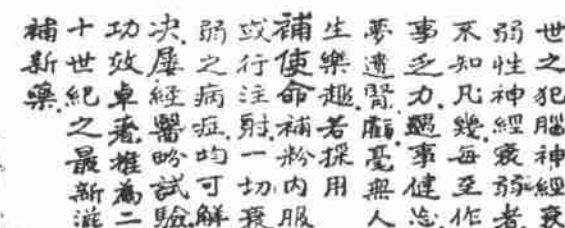 世之犯腦神經衰
弱性神經衰弱者.
不知凡幾每至作
事乏力.遇事健忘.
夢遺腎虧毫無人
生樂趣若採用
補使命補粉內服
或行注射一切衰
弱之病症.均可解
決.屢經醫盼試驗.
功效卓著.推為二
十世紀之最新滋
補新藥.